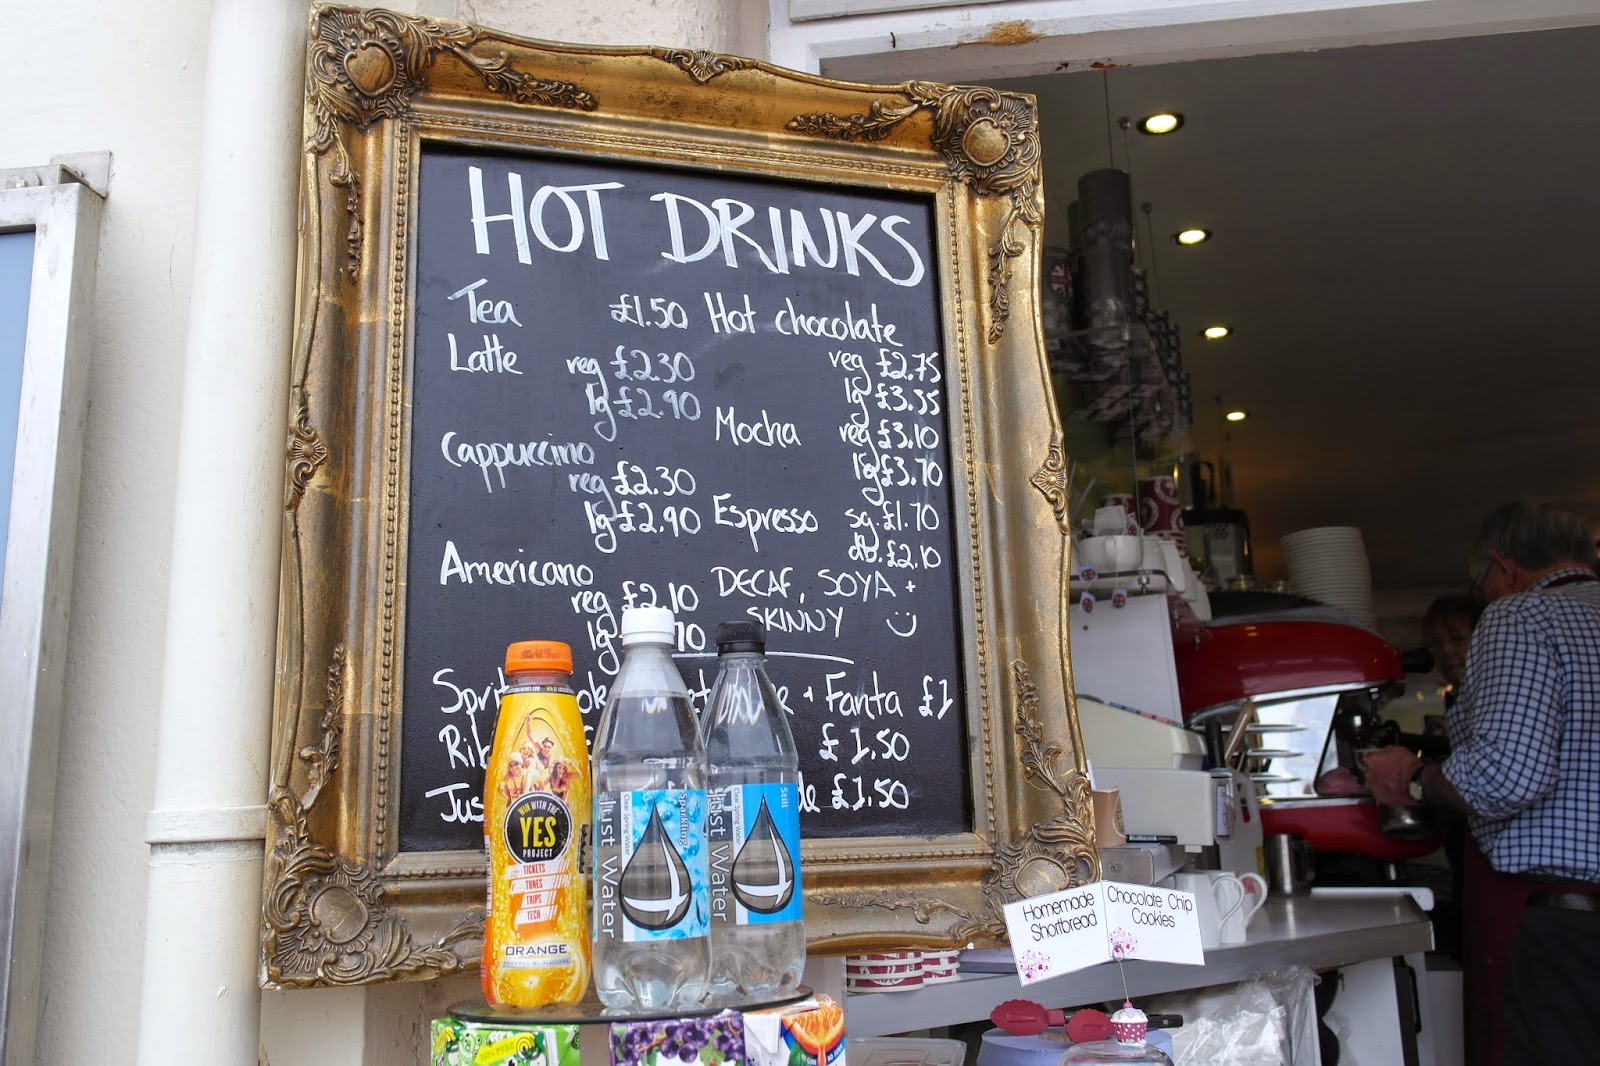 HOT DRINKS
Tea £1.50
Latte reg £2.30
lg £2.90
Cappuccino
reg £2.30
lg £2.90
Americano
reg £2.10
lg
Hot chocolate
reg £2.75
lg £3.35
Mocha reg £3.10
lg £3.70
Espresso sg. £1.70
db. £2.10
DECAF, SOYA +
SKINNY
+ Fanta £1
£1.50
£1.50
WIN WITH THE
YES
PROJECT
TICKETS
TONES
TRIPS
TECH
ORANGE
POWERED BY GLUCOSE
Just Water
Clear Spring Water
Sparkling
Just Water
Clear Spring Water
Still
Homemade
Shortbread
Chocolate Chip
Cookies
100% PURE